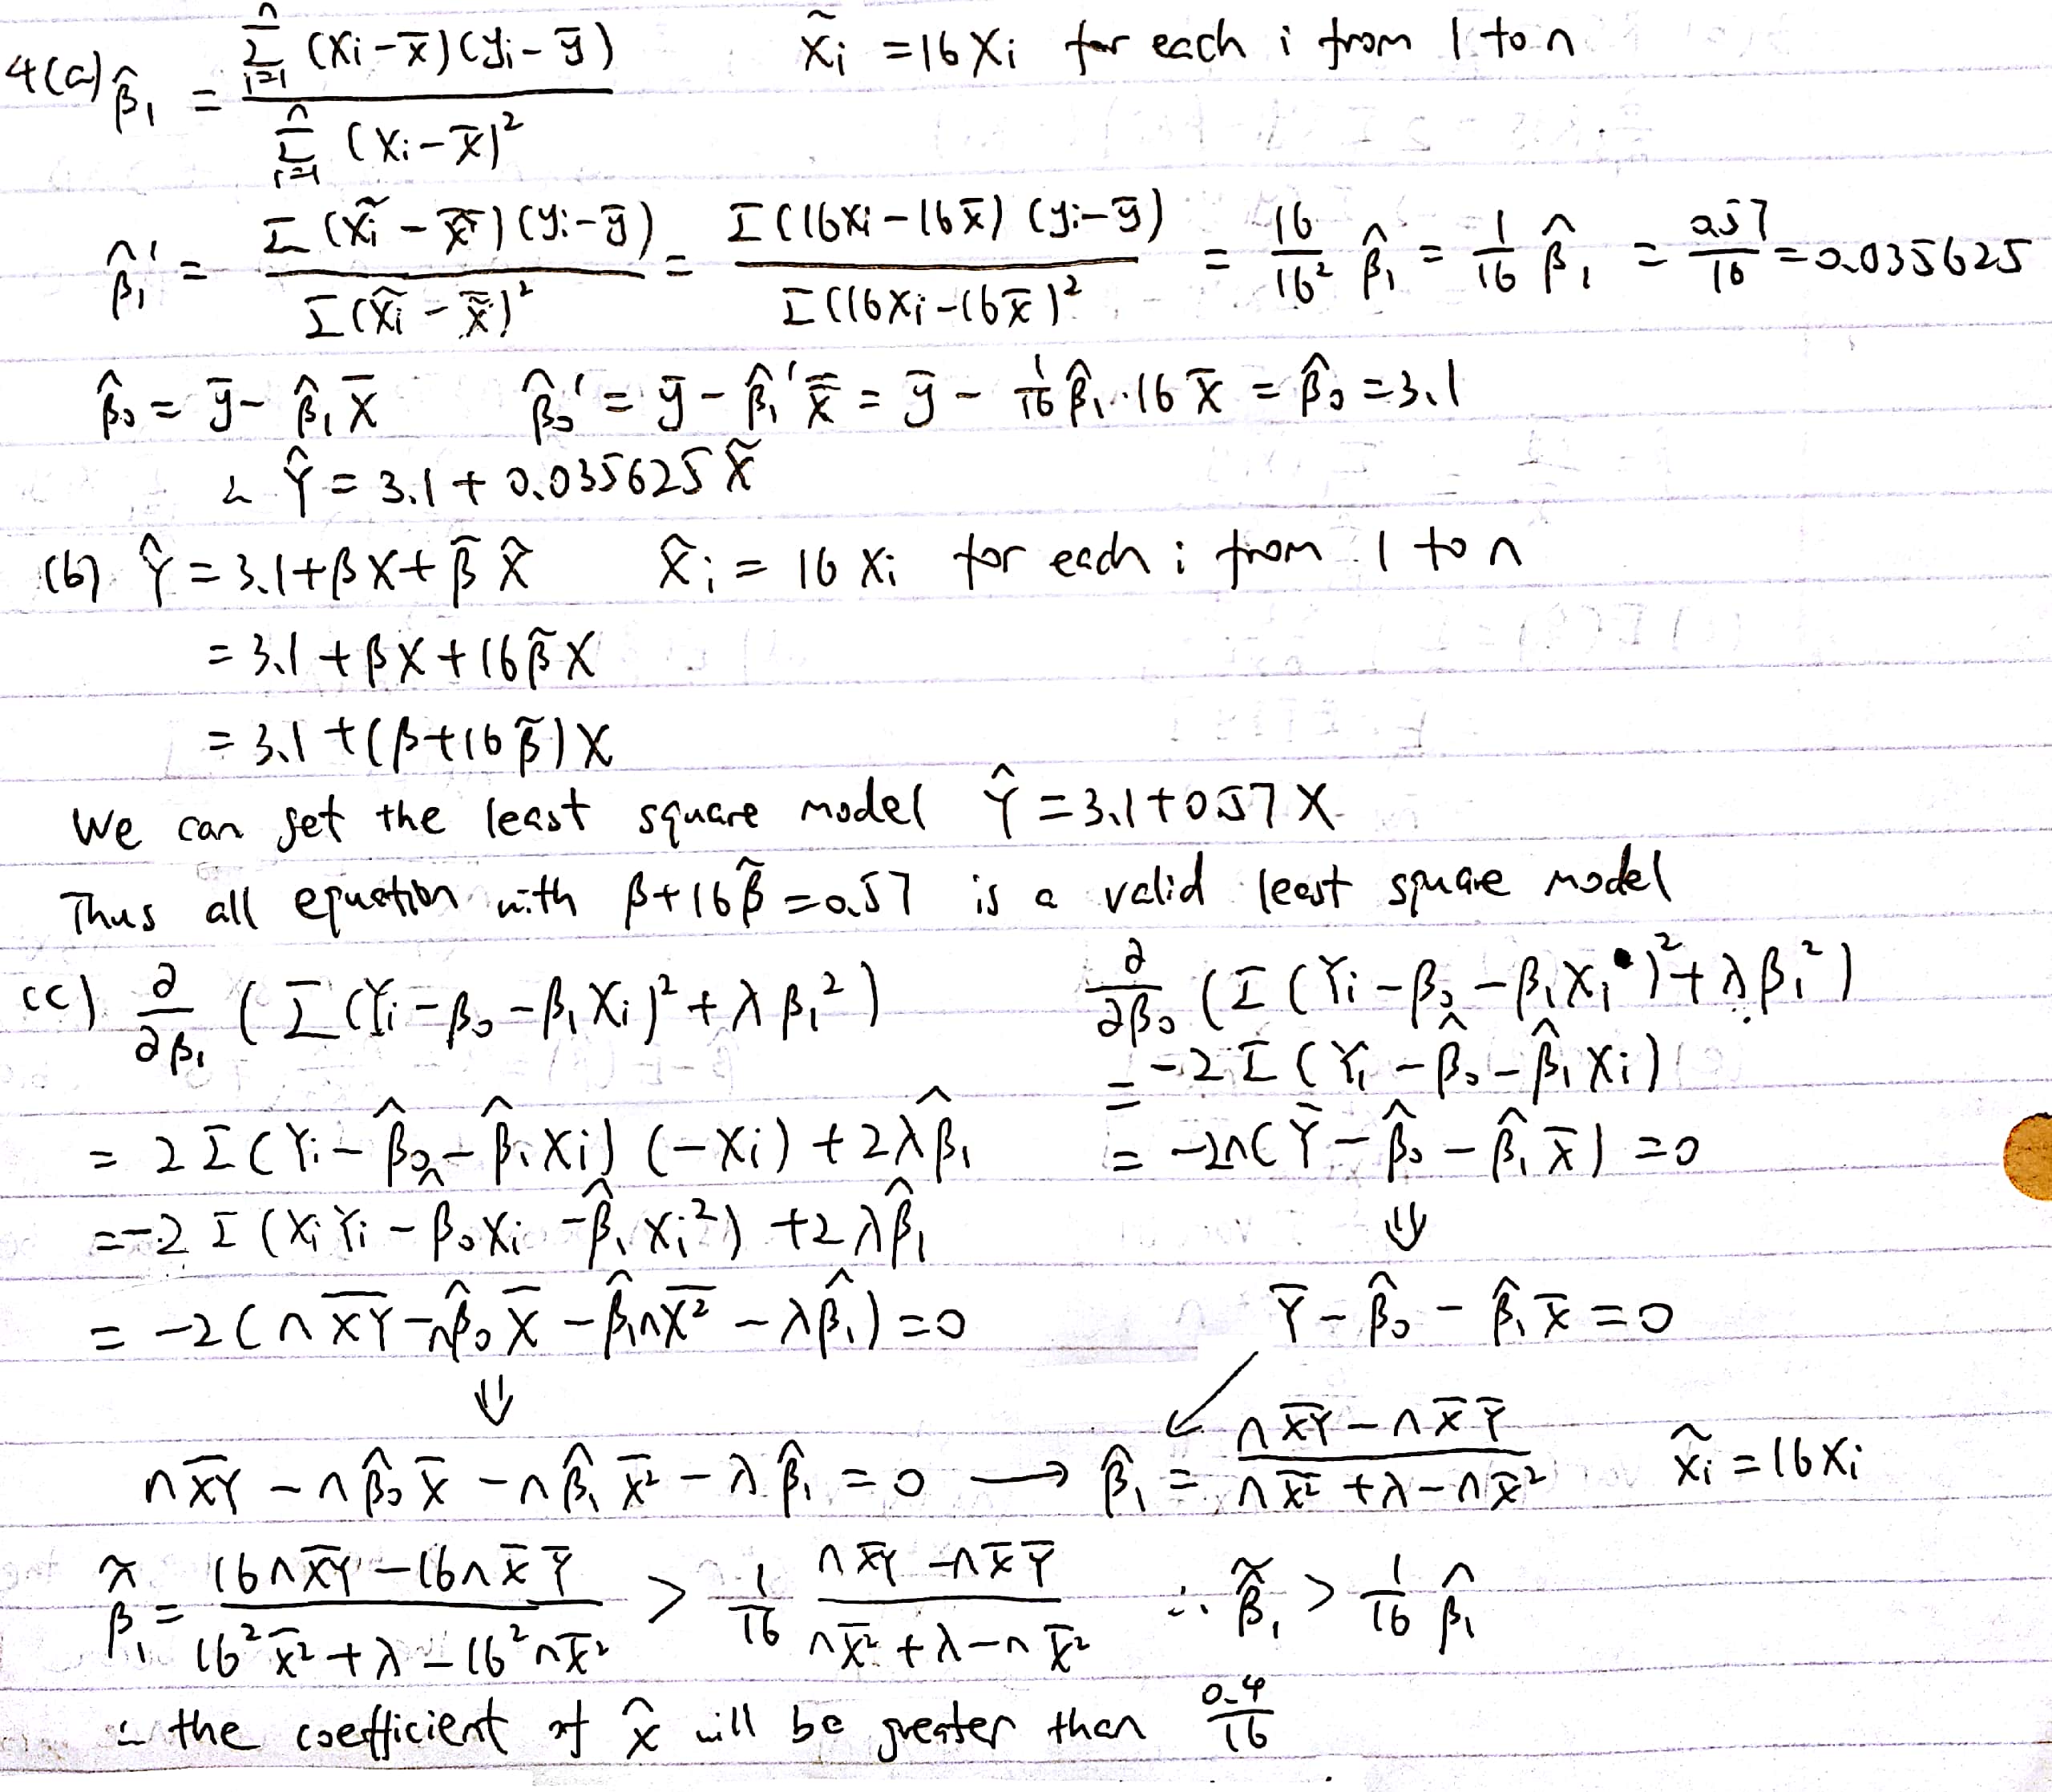 4(a) β̂₁ = Σⁿᵢ₌₁ (xᵢ - x̄)(yᵢ - ȳ) / Σⁿᵢ₌₁ (xᵢ - x̄)²    x̃ᵢ = 16xᵢ for each i from 1 to n
β̂₁' = Σ(x̃ᵢ - x̃̄)(yᵢ - ȳ) / Σ(x̃ᵢ - x̃̄)² = Σ(16xᵢ - 16x̄)(yᵢ - ȳ) / Σ(16xᵢ - 16x̄)² = 16/16² β̂₁ = 1/16 β̂₁ = 0.57/16 = 0.035625
β̂₀ = ȳ - β̂₁x̄    β̂₀' = ȳ - β̂₁'x̃̄ = ȳ - 1/16 β̂₁·16x̄ = β̂₀ = 3.1
∴ Ŷ = 3.1 + 0.035625 X̃
(b) Ŷ = 3.1 + βX + β̃X̃    x̃ᵢ = 16xᵢ for each i from 1 to n
= 3.1 + βX + 16β̃X
= 3.1 + (β + 16β̃)X
We can get the least square model Ŷ = 3.1 + 0.57X
Thus all equation with β + 16β̃ = 0.57 is a valid least square model
(c) ∂/∂β₁ (Σ(Yᵢ - β₀ - β₁Xᵢ)² + λβ₁²)    ∂/∂β₀ (Σ(Yᵢ - β₀ - β₁Xᵢ)² + λβ₁²)
= -2Σ(Yᵢ - β̂₀ - β̂₁Xᵢ)
= 2Σ(Yᵢ - β̂₀ - β̂₁Xᵢ)(-Xᵢ) + 2λβ̂₁    = -2n(Ȳ - β̂₀ - β̂₁X̄) = 0
= -2Σ(XᵢYᵢ - β̂₀Xᵢ - β̂₁Xᵢ²) + 2λβ̂₁    ⇓
= -2(n X̅Y̅ - nβ̂₀X̄ - β̂₁n X̅²̅ - λβ̂₁) = 0    Ȳ - β̂₀ - β̂₁X̄ = 0
⇓    ↙
n X̅Y̅ - nβ̂₀X̄ - nβ̂₁ X̅²̅ - λβ̂₁ = 0 → β̂₁ = (n X̅Y̅ - nX̄Ȳ) / (n X̅²̅ + λ - nX̄²)    x̃ᵢ = 16xᵢ
β̃̂₁ = (16n X̅Y̅ - 16nX̄Ȳ) / (16² X̅²̅ + λ - 16²nX̄²) > 1/16 (n X̅Y̅ - nX̄Ȳ) / (n X̅²̅ + λ - nX̄²)    ∴ β̃̂₁ > 1/16 β̂₁
∴ the coefficient of x̃ will be greater than 0.4/16